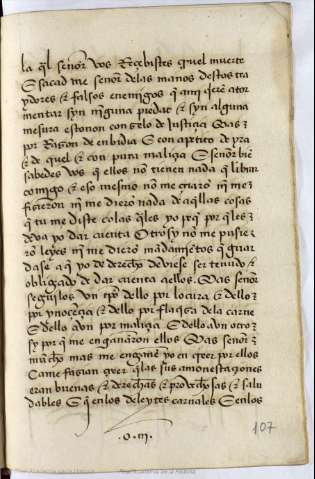 la q̃l señor vos Reçebistes cruel muerte
E sacad me señor delas manos destos tra
ydores & falsos enemigos q̃ ami q̃ere ator
mentar syn ninguna piedat & syn alguna
mesura & son non con zelo de Justiçia Mas
por Razon de enbidia E con apetito de yra
& de quel & con pura maliçia E señor bie
sabedes vos q̃ ellos no tienen nada q̃ librar
comigo & eso mesmo no me criaro ni me
figieron ni me diero nada de aq̃llas cosas
q̃ tu me diste cõ las q̃les yo peq̃ por q̃ les
deua yo dar cuenta Otrosy no me pusie
ro leyes ni me diero mãdamiẽtos q̃ guar
dase a q̃ yo de derecho deuiese ser tenudo &
obligado de dar cuenta aellos. Mas señor
seguilos un tpõ dello por locura & dello
por ynoçẽçia & dello por flaq̃sa dela carne
E dello avn por maliçia. E dello avn otro
sy por q̃ me engañaron ellos Mas señor
mucho mas me engañe yo en creer por ellos
Ca me fasian creer q̃ las sus amonestaçiones
eran buenas & derechas & prouechosas & salu
dables E q̃ en los deleytes carnales E en los
107